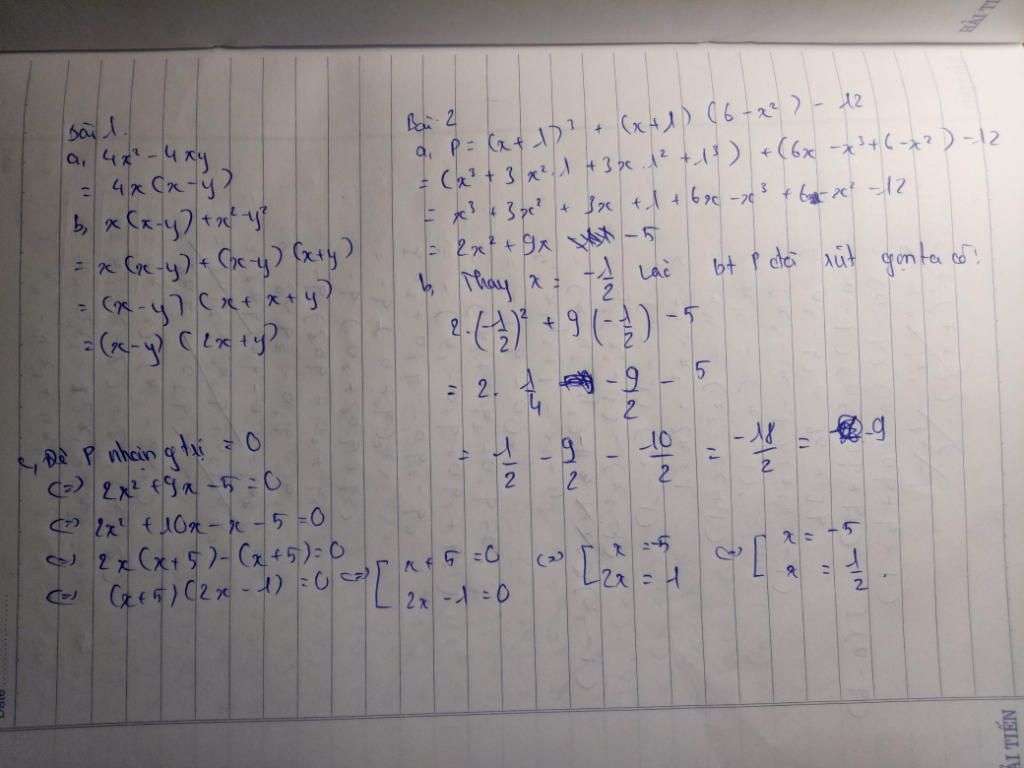 Bài 1.
a, 4x² - 4xy
= 4x(x-y)
b, x(x-y) + x² - y²
= x(x-y) + (x-y)(x+y)
= (x-y)(x + x + y)
= (x-y)(2x+y)
Bài 2
a, P = (x+1)³ + (x+1)(6-x²) - 12
= (x³ + 3x².1 + 3x.1² + 1³) + (6x - x³ + 6 - x²) - 12
= x³ + 3x² + 3x + 1 + 6x - x³ + 6 - x² - 12
= 2x² + 9x - 5
b, Thay x = -1/2 vào bt P đã rút gọn ta có:
2.(-1/2)² + 9(-1/2) - 5
= 2. 1/4 - 9/2 - 5
= 1/2 - 9/2 - 10/2 = -18/2 = -9
c, Để P nhận gtrị = 0
<=> 2x² + 9x - 5 = 0
<=> 2x² + 10x - x - 5 = 0
<=> 2x(x+5) - (x+5) = 0
<=> (x+5)(2x-1) = 0 <=> [ x+5 = 0 <=> [ x = -5 <=> [ x = -5
2x - 1 = 0 2x = 1 x = 1/2.
HẢI TIẾN
Date